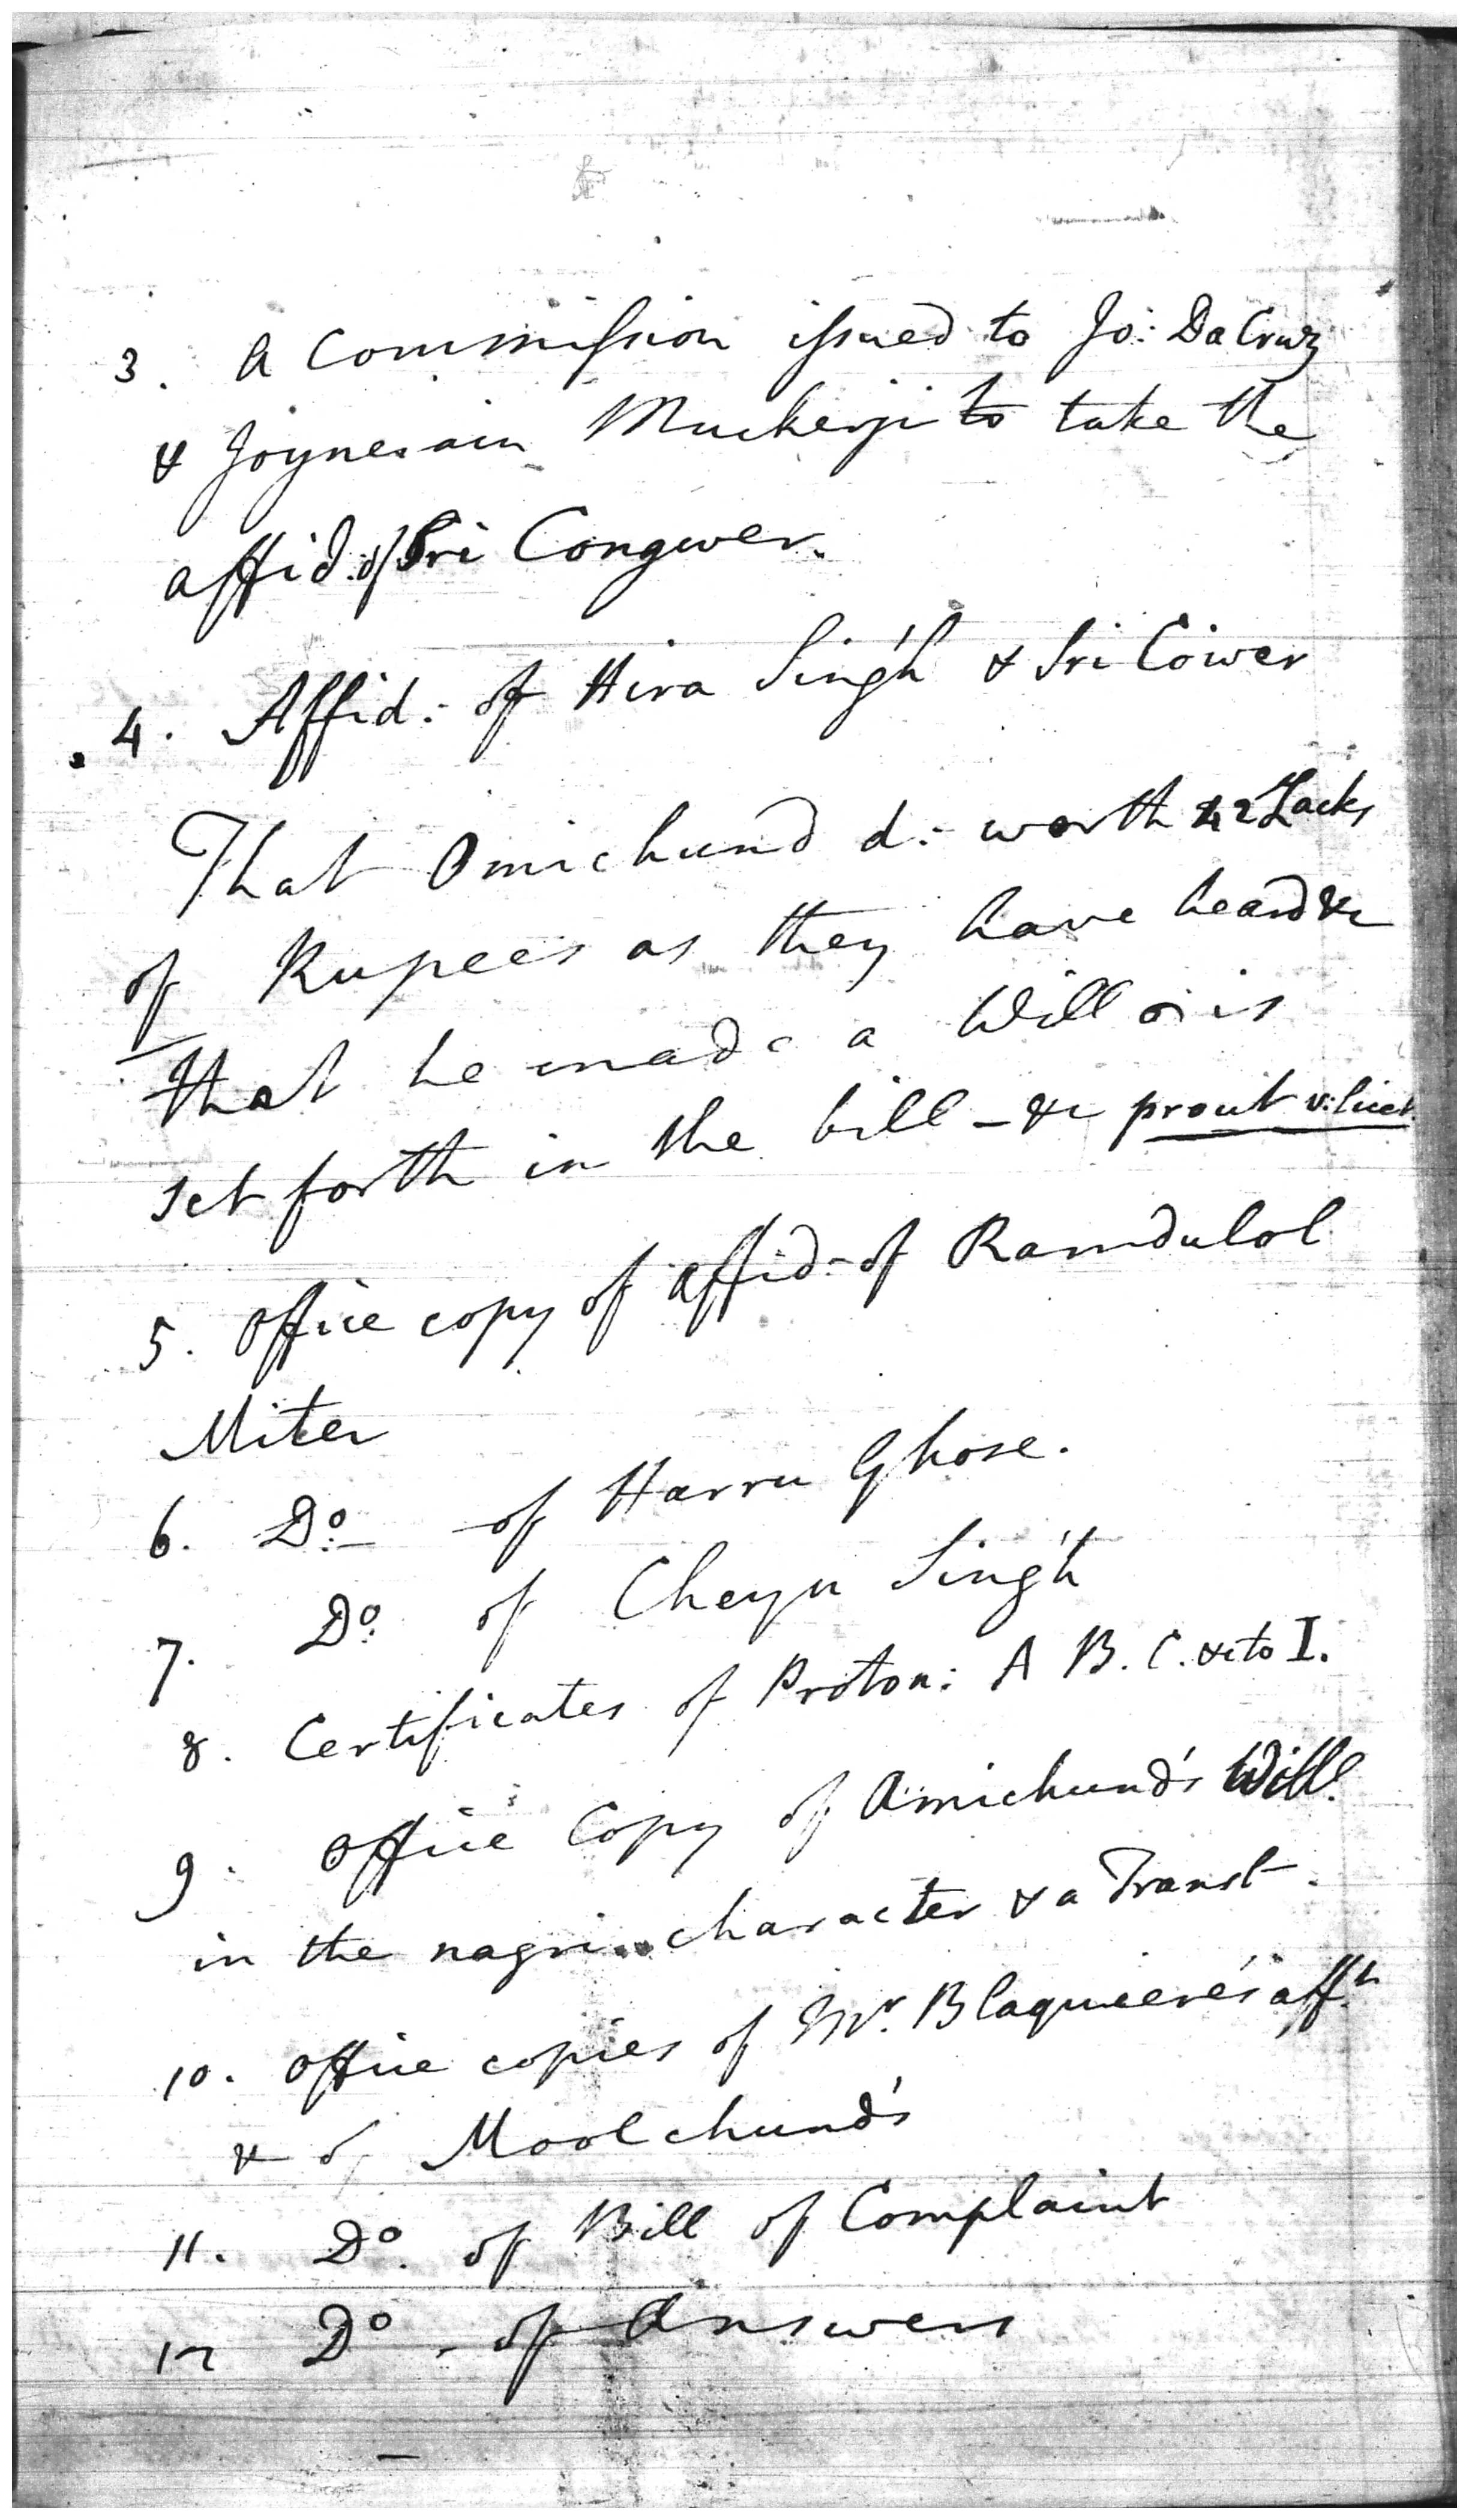 3. A Commission issued to Jo: Da Cruz
& Joynerain Muckerji to take the
affid: of Sri Congwer.
4. Affid: of Hira Sing'h & Sri Cower
That Omichund d: worth 42 Lacks
of Rupees as they have heard &c
that he made a Will as is
set forth in the bill - &c prout v:
5. Office copy of affid: of Ramdulol
Miter
6. Do: of Harru Ghose.
7. Do: of Cheyn Sing'h
8. Certificates of Proton: A B. C. &c to I.
9. Office Copy of Omichund's Will
in the nagri character & a Transl.
10. Office copies of Mr. Blaquiere's aff.ts
& of Moolchund's
11. Do. of Bill of Complaint
12 Do - of Answers